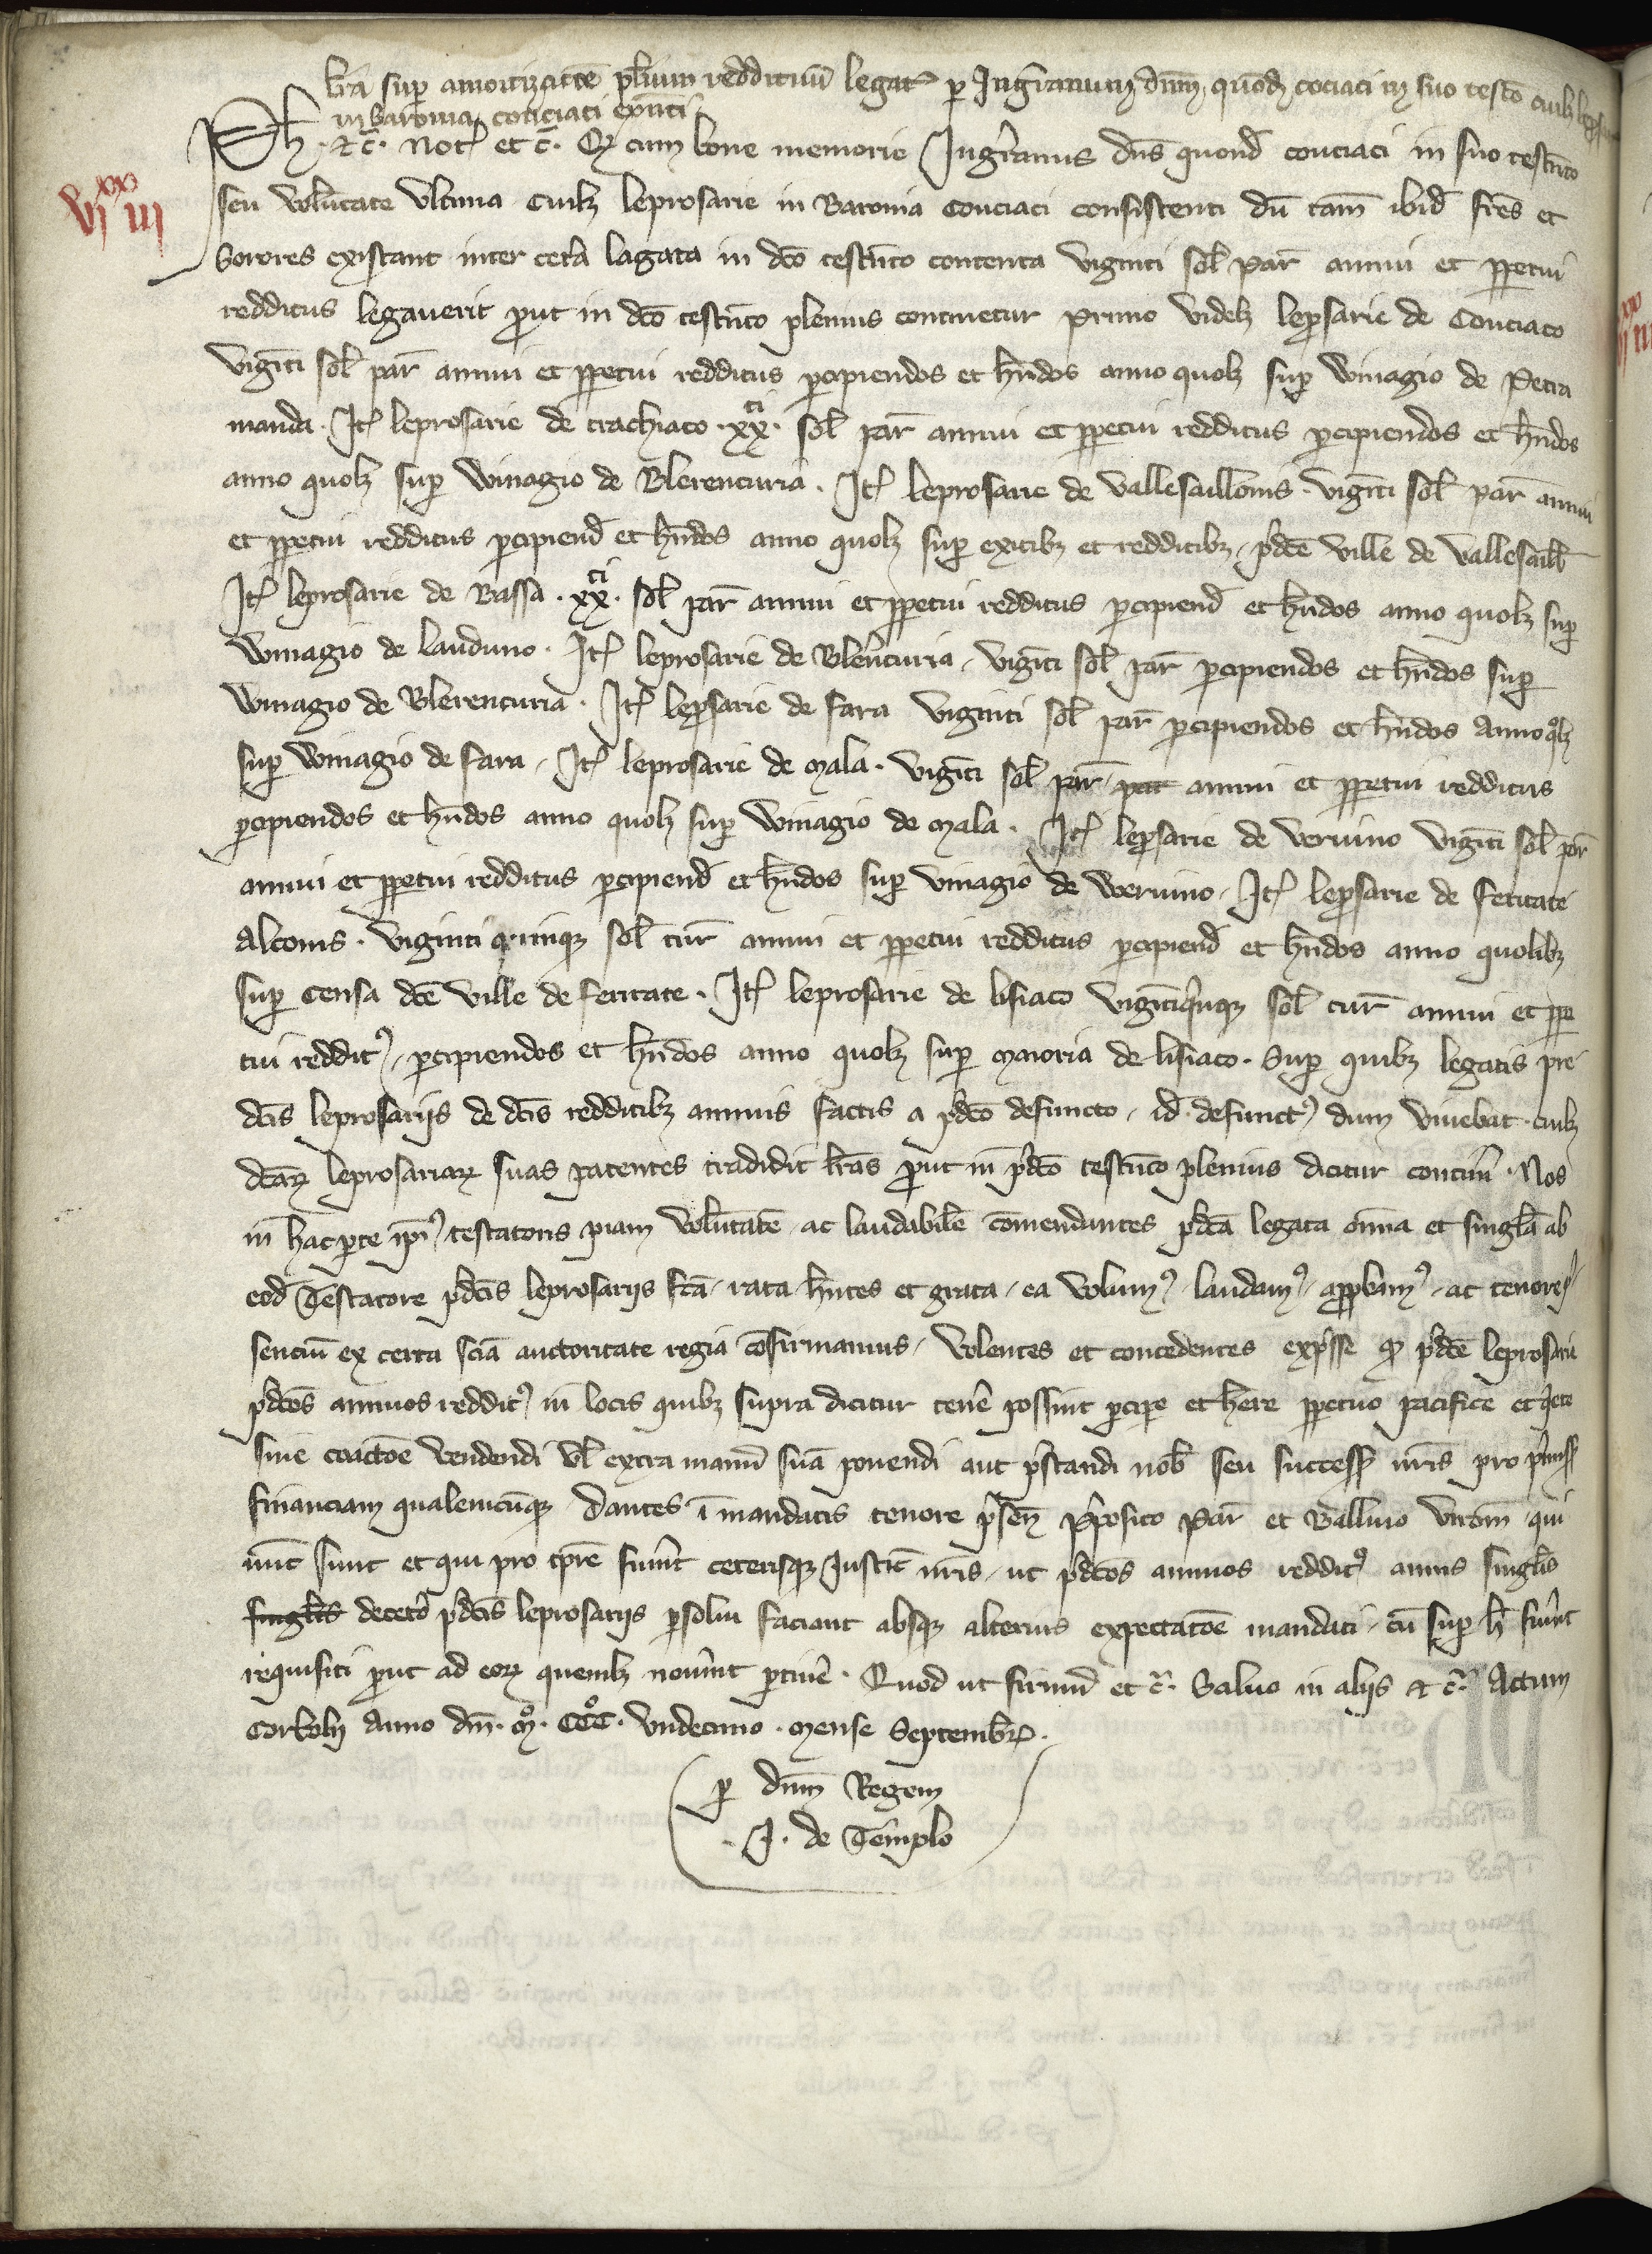 lra sup amortizatiōe plīum reddituū legat p Ingrānum dnm quōd cociaci in suo testō cuilz
in baronia couciaci exnti
Ph. & c̄. Not et c̄. Q cum bone memorie Ingrānus dns quond couciaci in suo testīnto
seu volūtate ultima cuilz leprosarie in Baronia Couciaci consistenti dū tam̄ ibid fres et
Sorores existant inter cetā lagata in dc̄o testīnto contenta viginti sol par annui et ppetui
redditus legauerit put in dc̄o testīnto plenius continetur Primo videlz lepsarie de Couciaco
vigīti sol par annui et ppetui redditus pcipiendos et hn̄dos anno quolz sup winagio de Petra
manda. It leprosarie de trachiaco .xx^ti. sol par annui et ppetui redditus pcipiendos et hn̄dos
anno quolz sup winagio de Blerencuria. It leprosarie de vallesaillonis. vigīti sol par annui
et ppetui redditus pcipiend et hn̄dos anno quolz sup exitibz et redditibz pdc̄e ville de vallesaill
It leprosarie de Bassa .xx^ti. sol par annui et ppetui redditus pcipiend et hn̄dos anno quolz sup
winagio de lauduno. It leprosarie de Blen̄curia, vigīti sol par pcipiendos et hn̄dos sup
winagio de Blerencuria. It lepsarie de fara viginti sol par pcipiendos et hn̄dos anno qlz
sup winagio de fara, It leprosarie de mala. vigīti sol par par annui et ppetui redditus
pcipiendos et hn̄dos anno quolz sup winagio de mala. It lepsarie de veruino vigīti sol par
annui et ppetui redditus pcipiend et hn̄dos sup vinagio de weruino, It lepsarie de feritate
alconis. viginti quinqz sol tur annui et ppetui redditus pcipiend et hn̄dos anno quolibz
sup censa dc̄e ville de feritate. It leprosarie de lisiaco vigītiqnqz sol tur annui et ppe
tui reddit9, pcipiendos et hn̄dos anno quolz sup maioria de lisiaco. Sup quibz legatis pre
dc̄is leprosariis de dc̄is redditibz annuis factis a pdc̄o defuncto, id defunct9 dum viuebat. cuilz
dc̄ar leprosariar suas patentes tradidit lrās put in pdc̄o testīnto plenius dicitur contin̄i. Nos
in hac pte ipi9 testatoris piam volūtatē ac laudabilē cōmendantes pdc̄a legata om̄ia et singlā ab
eod Testatore pdc̄is leprosariis fc̄a, rata hn̄tes et grata, ea volum9, laudam9, appbam9, ac tenore p
sentiū ex certa scīa auctoritate regia cōfirmamus, volentes et concedentes expsse q pdc̄e leprosarie
pdc̄os annuos reddit9 in locis quibz supra dicitur tenē possint pcipe et here ppetuo pacifice et qete
sine coactōe vendendi vl extra manū suā ponendi aut pstandi nob seu success nris pro pmiss
financiam qualemcūqz Dantes ī mandatis tenore psen̄ pposito par et Balliuo virom̄, qui
nūc sunt et qui pro tpre fuerint ceterisqz Justic nris, ut pdc̄os annuos reddit9 annis singlis
singlis decetō pdc̄is leprosariis psolui faciant absqz alterius expectatōe mandati, cū sup h fuerint
requisiti put ad eor quemlz nouerint ptinē. Quod ut firmū et c̄. Saluo in aliis & c̄. Actum
Corbolii Anno dni. m°. ccc°. undecimo. mense Septembr.
p dnm Regem
J. de Templo
vi^xx iii